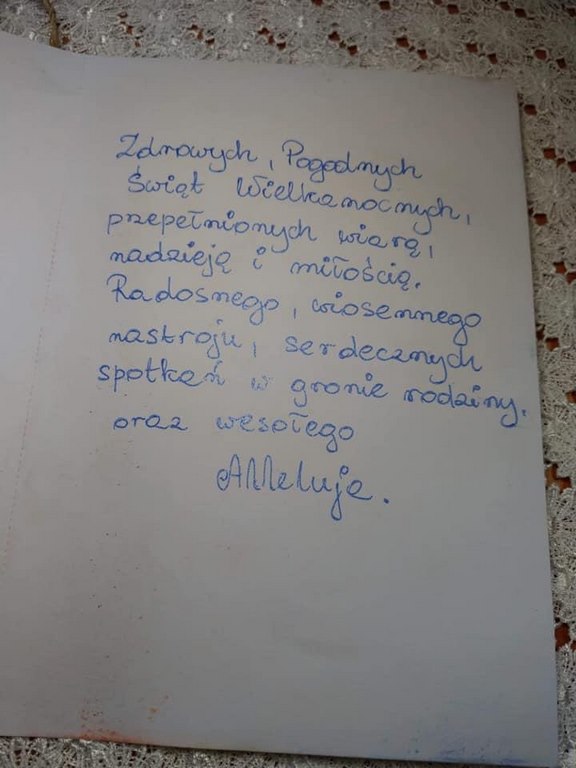 Zdrowych, Pogodnych
Świąt Wielkanocnych,
przepełnionych wiarą,
nadzieją i miłością.
Radosnego, wiosennego
nastroju, serdecznych
spotkań w gronie rodziny.
oraz wesołego
Alleluja.